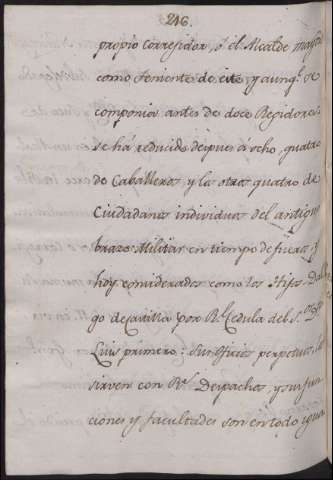 216.
propio corregidor, ó el Alcalde mayor
como Teniente de este, y aunq.e se
componia antes de doce Regidores
se há reducido despues á ocho, quatro
de Cavalleros, y la otra quatro de
Ciudadanos individuos del antiguo
brazo Militar en tiempo de fueros, y
hoy considerados como los Hijos Dal
go de Castilla por R.l Cedula del S.or D.n
Luis primero: Sus oficios perpetuos, los
sirven con R.s Despachos, y sus fun
ciones y facultades son en todo igua